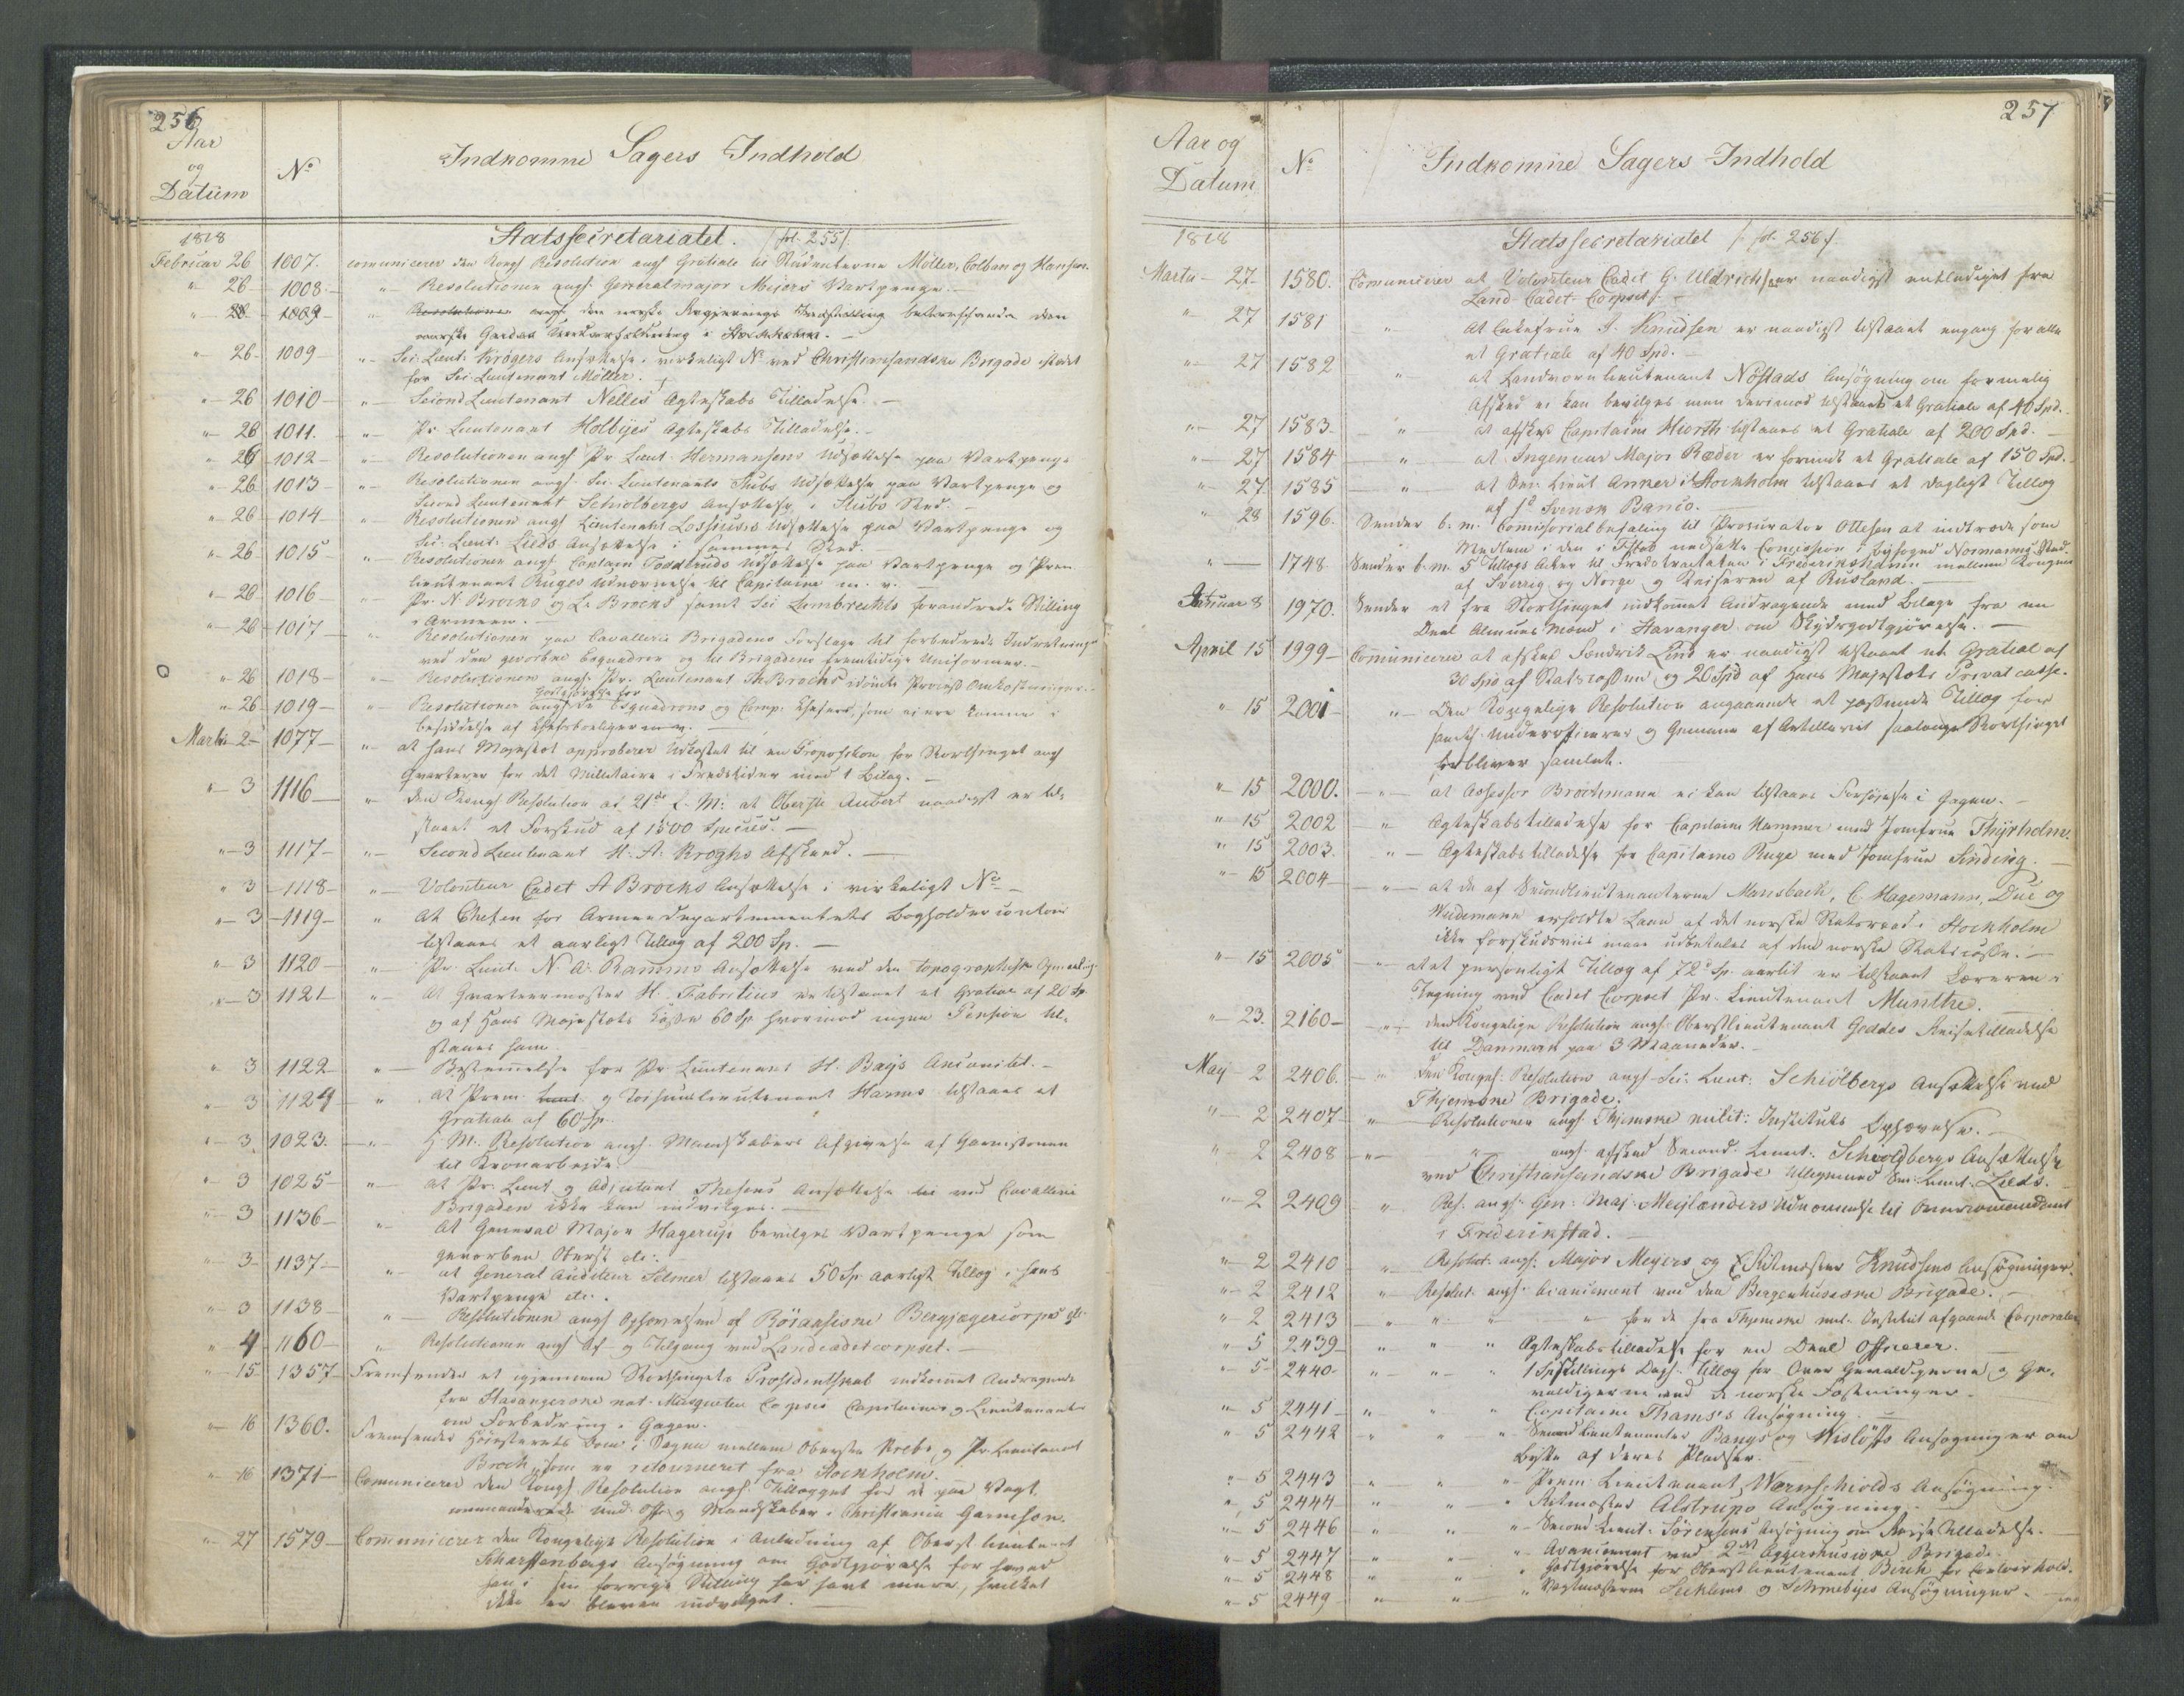 256
Aar
og
Datum
No
Indkomne Sagers Indhold
1818
Statssecretariatet. /fol. 255/
Februar 26 1007. communicerer den Kongl Resolution angl Gratiale til Studenterne Möller, Colban og Hansen.
" 26 1008. " Resolutionen angl. Generalmajor Meiers Vartpenge.
" 28 1009 " Resolutionen angl. den norske Regjerings Indstilling betræffende den
norske Gardes i Stockholm.
" 26 1009 " Sec. Lieut. Krögers Ansættelse i virkeligt No ved Christiansandske Brigade istedet
for Sec. Lieutenant Möller.
" 26 1010 " Second Lieutenant Nelles Ægteskabs Tilladelse.
" 26 1011. " Pr. Lieutenant Holbyes Ægteskabs Tilladelse.
" 26 1012 " Resolutionen angl Pr. Lieut. Hermansens Udsættelse paa Vartpenge
" 26 1013 " Resolutionen angl. Sec. Lieutenants Stubs Udsættelse paa Vartpenge og
Second Lieutenant Schiolbergs Ansættelse i Stubs Sted.
" 26 1014 " Resolutionen angl Lieutenant Lossius's Udsættelse paa Vartpenge og
Sec. Lieut. Lieds Ansættelse i sammes Sted.
" 26 1015 " Resolutionen angl. Captain Todderuds Udsættelse paa Vartpenge og Prem.
lieutenant Ruges Udnævnelse til Capitaine m. v.
" 26 1016 " Pr. N. Brocks og L. Brocks samt Sec. Lambrechts forandrede Stilling
i Armeen.
" 26 1017 " Resolutionen paa Cavallerie Brigadens Forslage til forbedrede Indretninger
ved den gevorbne Esquadron og til Brigadens fremtidige Uniformer.
" 26 1018 " Resolutionen angl. Pr. Lieutenant Th. Brocks idömte Process Omkostninger.
Godtgjörelse for
" 26 1019 " Resolutionen angl de Esquadrons og Comp. Chefer, som ei ere komne i
besiddelse af Chefsboeliger m. v.
Martii 2 1077 " at Hans Majestæt approberer Udkastet til en Proposition for Storthinget angl
Qvarterer for det Militaire i Fredstider med 1 Bilag.
" 3 1116 " den Kongl Resolution af 21de f. M: at Oberste Aubert naadigst er til-
staaet et Forskud af 1500 Species.
" 3 1117 " Second Lieutenant H. A. Kroghs Afskeed.
" 3 1118 " Volonteur Cadet A Brocks Ansættelse i virkeligt No
" 3 1119 " At Chefen for Armee Departementets Bogholdercontoir
tilstaaes et aarligt Tillæg af 200 Sp.
" 3 1120 " Pr. Lieut. N. A. Ramms Ansættelse ved den topographiske Opmaaling.
" 3 1121 " At Qvarteermester H. Fabritius er tilstaaet et Gratial af 20 Sp.
og af Hans Majestæts Casse 60 Sp hvormod ingen Pension til-
staaes ham
" 3 1122 " Bestemmelse for Pr. Lieutenant H. Bays Ancienitet.
" 3 1124 " At Prem. Lieut. og Toihuuslieutenant Harms tilstaaes et
Gratiale af 60 Sp.
" 3 1023. " H. M. Resolution angl. Mandskabers Afgivelse af Garnisonen
til Kronarbeide.
" 3 1025 " At Pr. Lieut. og Adjutant Thesens Ansættelse ved Cavallerie
Brigaden ikke kan indvilges.
" 3 1136 " At General Major Hagerups bevilges Vartpenge som
gevorben Oberst etc.
" 3 1137 " at General Auditeur Selmer tilstaaes 50 Sp aarligt Tillæg i hans
Vartpenge etc.
" 3 1138 " Resolutionen angl Ophævelsen af Röraasiske Bergjægercorps etc
" 4 1160 " Resolutionen angl Af- og Tilgang ved Landcadetcorpset.
" 15 1357 Fremsender et igjennem Storthingets Præsidentskab indkomet Andragende
fra Stavangerske nat. Musqueteer Corpses Capitainer og Lieutenanter
om Forbedring i Gagen.
" 16 1360. Fremsender Höiesterets Dom i Sagen mellem Oberste Krebs og Pr. Lieutenant
Brock, som er retourneret fra Stockholm.
" 16 1371 Comunicerer den Kongl. Resolution angl. Tillægget for de paa Vagt
commanderede Und. Off. og Mandskaber i Christiania Garnison.
" 27 1579 Communicerer den Kongelige Resolution i Anledning af Oberst lieutenant
Scharffenbergs Ansögning om Godtgjörelse for hvad
han i sin forrige Stilling har havt mere, hvilket
ikke er bleven indvilget.
257
Aar og
Datum
No
Indkomne Sagers Indhold
1818
Statssecretariatet /: fol. 256 :/.
Martii 27 1580. Comunicerer at Volonteur Cadet G. Uldrich er naadigst entlediget fra
Land Cadet Corpset.
" 27 1581 " At Enkefrue J. Knudsen er naadigst tilstaaet engang for alle
et Gratiale af 40 Spd.
" 27 1582 " at Landværnlieutenant Nöstads Ansögning om formelig
Afsked ei kan bevilges men derimod tilstaaes et Gratiale af 40 Spd.
" 27 1583 " at afskd. Capitaine Hiorth tilstaaes et Gratiale af 200 Spd.
" 27 1584 " at Ingenieur Major Ræder er forundt et Gratiale af 150 Spd.
" 27 1585 " at Sec. Lieut Anker i Stockholm tilstaaes et dagligt Tillæg
af 1d Svensk Banco.
" 28 1596. Sender b. m. Comissorialbefaling til Procurator Ottesen at indtræde som
Medlem i den i nedsatte Comission i Byfoged Normanns Sted.
" 1748 Sender b. m. 5 Tillægs Acter til Fredstractaten i Frederikshavn mellem Kongen
af Sverrig og Norge og Keiseren af Rusland.
Februar 8 1970. Sender et fra Storthinget indkomet Andragende med Bilage fra en
Deel Almues Mænd i Stavanger om Skydsgodtgjörelse.
April 15 1999 Comunicerer at afsked Fændrik Lind er naadigst tilstaaet et Gratial af
30 Spd af Statscassen og 20 Spd af Hans Majestæts Privat casse.
" 15 2001 " Den Kongelige Resolution angaaende et passende Tillæg for
samtl. Underofficerer og Gemene af Artilleriet saalænge Storthinget
forbliver samlet.
" 15 2000. " at Assessor Brochmann ei kan tilstaaes Forhöielse i Gagen.
" 15 2002 " Ægteskabstilladelse for Capitaine Hammer med Jomfrue Thyrholm.
" 15 2003. " Ægteskabstilladelse for Capitaine Ruge med Jomfrue Sinding.
" 15 2004 " at de af Secondlieutenanterne Mansbach, C. Hagemann, Due og
Wedemann erholdte Laan af det norske Statsraad i Stockholm
ikke forskudsviis maae udbetales af den norske Statscasse.
" 15 2005 " at et personligt Tillæg af 72 Sp. aarlit er tilstaaet Læreren i
Tegning ved Cadet Corpset Pr. Lieutenant Munthe.
" 23. 2160 " den Kongelige Resolution angl. Oberstlieutenant Geddes Reisetilladelse
til Danmark paa 3 Maaneder.
May 2 2406. " den Kongel. Resolution angl. Sec. Lieut. Schiölbergs Ansættelse ved
Thjemske Brigade.
" 2 2407 " Resolutionen angl. Thjemske milit: Instituts Ophævelse.
" 2 2408 " " angl. afskeed Second. Lieut. Schioldbergs Ansættelse
ved Christiansandske Brigade tilligemed Sec. Lieut. Lieds.
" 2 2409 " Res. angl. Gen: Maj. Meylænders Udnævnelse til Overcommendant
i Friderikstad.
" 2 2410 " Resolut. angl. Major Meyers og Ritmester Knudsens Ansögninger.
" 2 2412 " Resolut. angl. Avancement ved den Bergenhusiske Brigade.
" 2 2413 " " " " for de fra Thjemske mil. Institut afgaaende Corporaler
" 5 2439 " " " Ægteskabstilladelse for en Deel Officerer.
" 5 2440 " " " 1 Spskillings Dagl. Tillæg for Over Gevaldigerne og Ge-
valdigerne ved de norske Fæstninger.
" 5 2441 " " " Capitaine Thams's Ansögning.
" 5 2442 " " " Secondlieutenanter Bangs og Wislöffs Ansøgninger om
Bytte af deres Pladser.
" 5 2443 " " " Prem. Lieutenant Wernschiolds Ansögning.
" 5 2444 " " " Ritmester Alstrups Ansögning.
" 5 2446 " " " Second Lieut. Sörensens Ansögning om Reise Tilladelse.
" 5 2447 " " " Avancement ved 2det Aggershusiske Brigade.
" 5 2448 " " " Godtgjörelse for Oberstlieutenant Birch for Contoirhold.
" 5 2449 " " " Vagtmesterne Seehlens og Schmebyes Ansögninger.